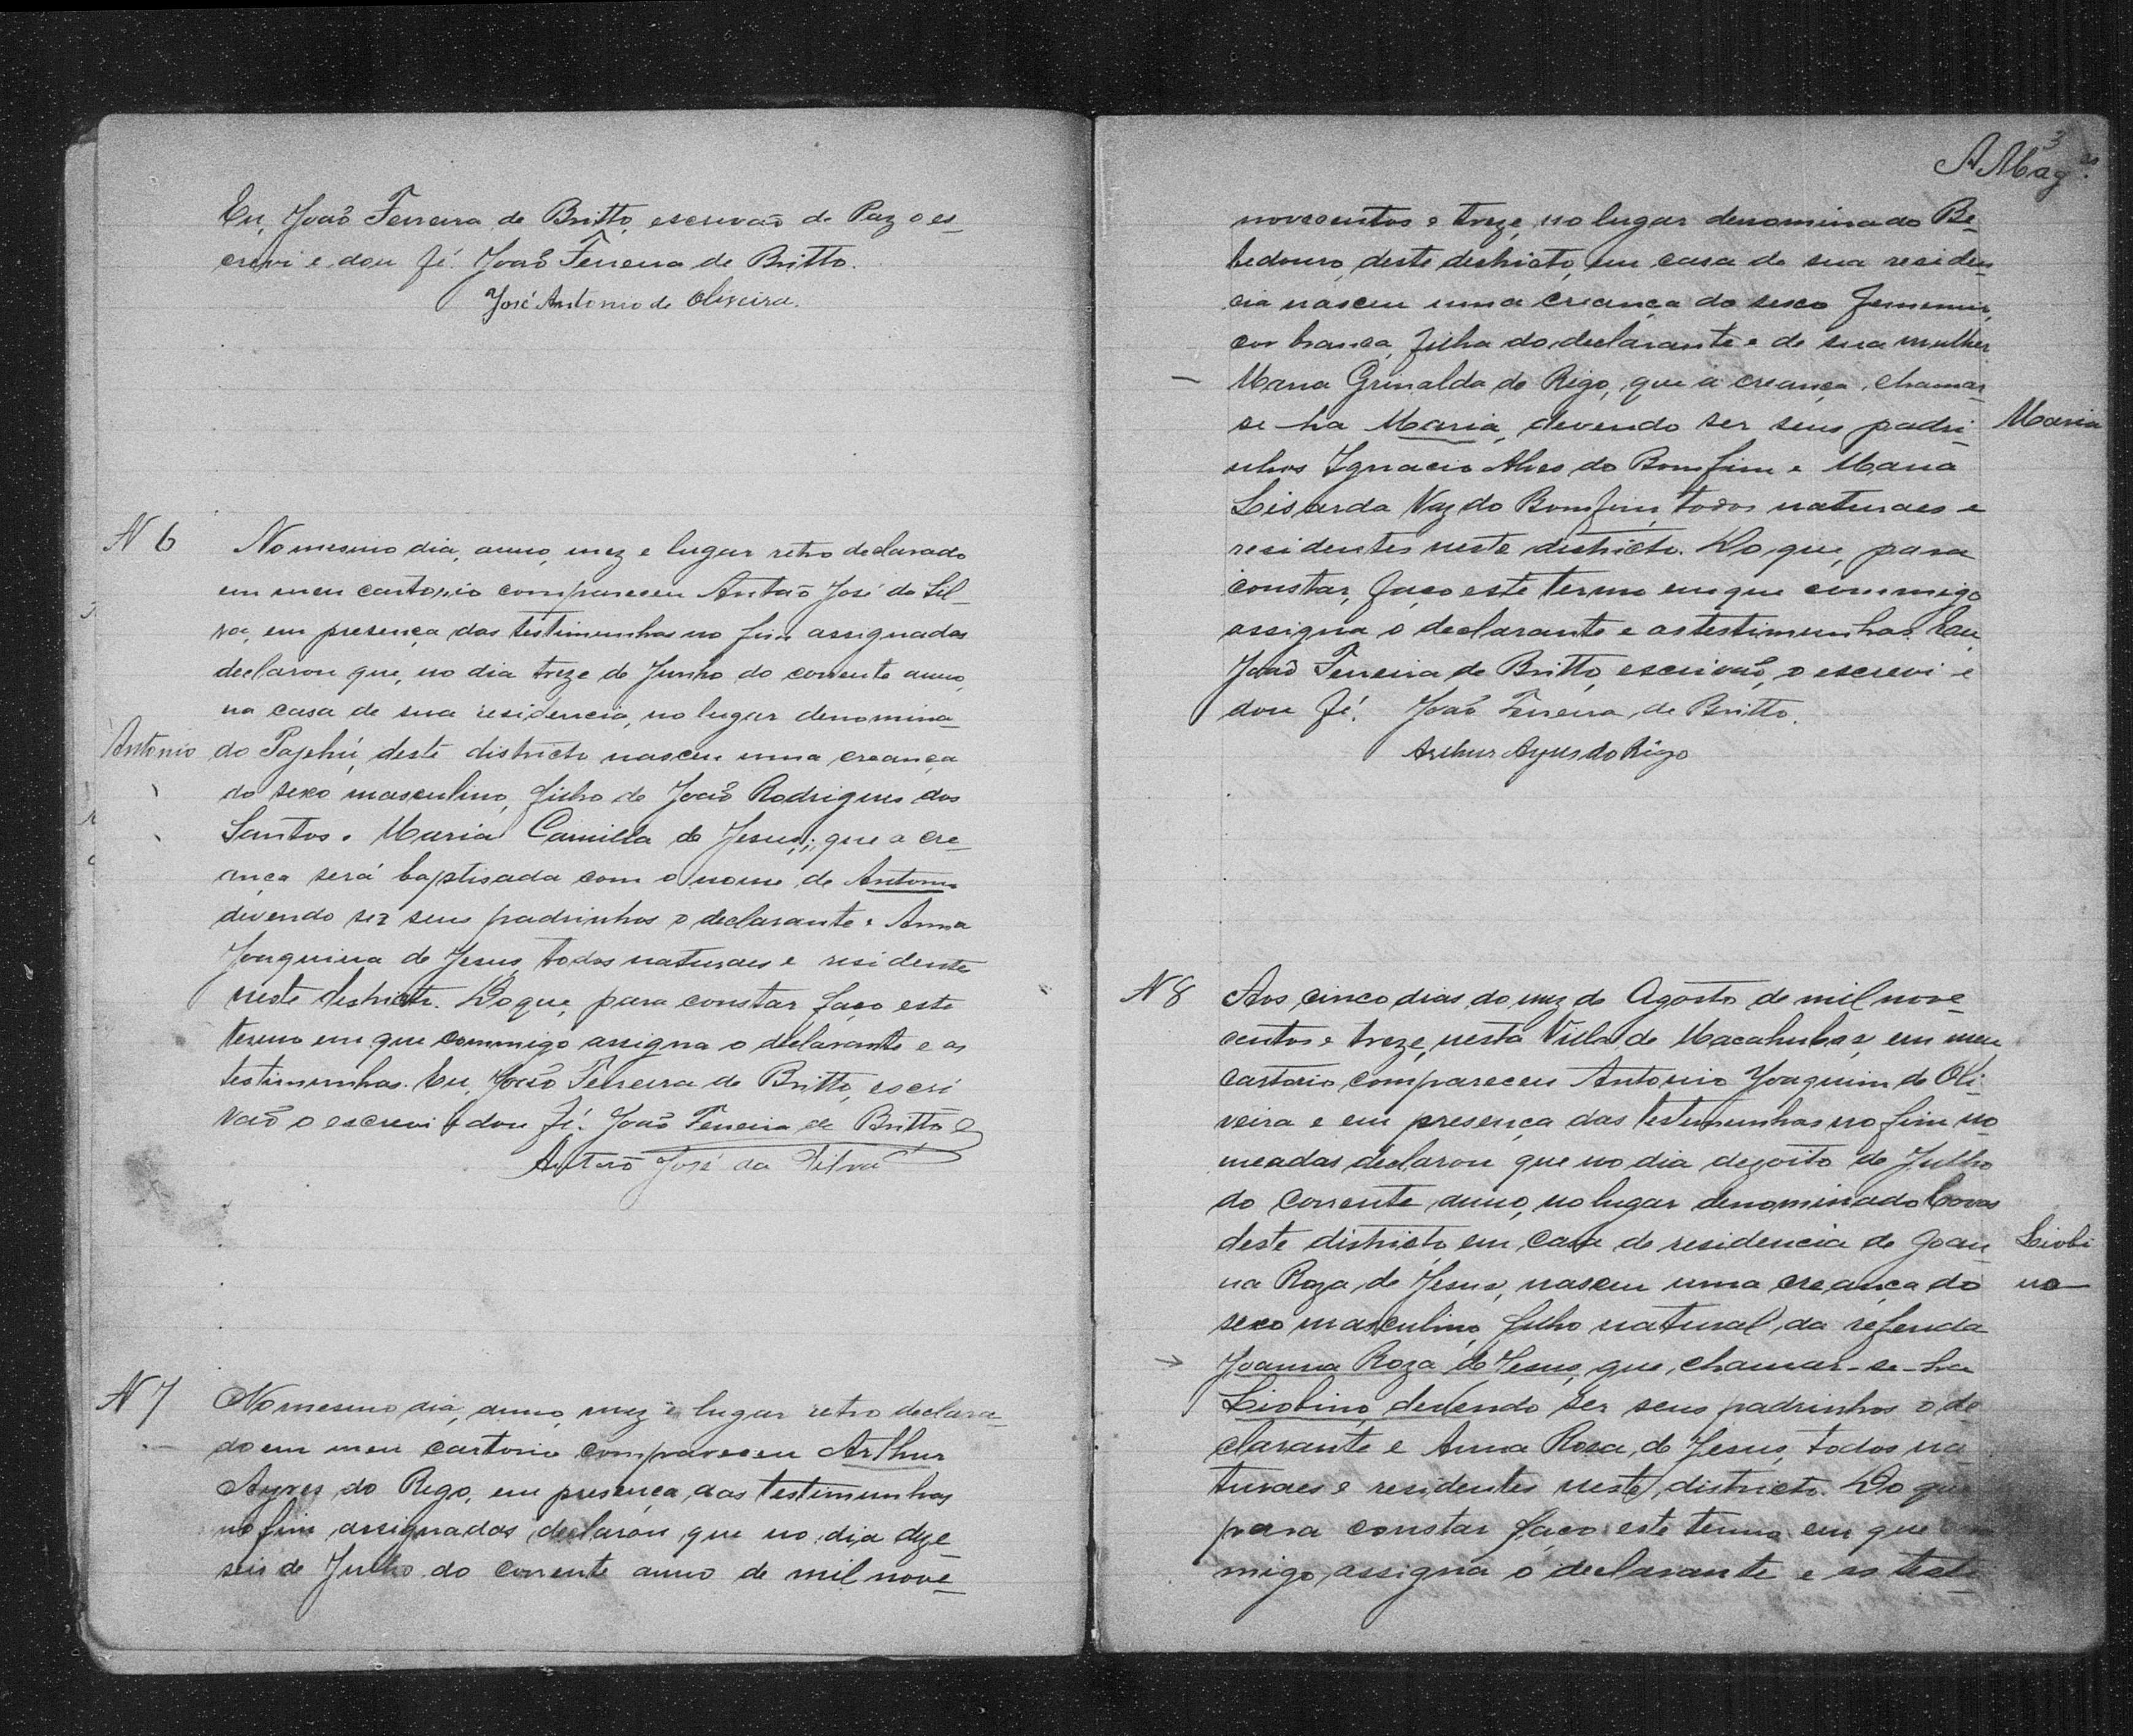 Eu, João Ferreira de Britto, escrivão de Paz o es-
crevi e dou fé. João Ferreira de Britto.
José Antonio de Oliveira.
N 6
No mesmo dia, anno, mez e lugar retro declarado
em meu cartorio compareceu Antaõ José da Sil-
va, em presença das testimunhas no fim assignadas
declarou que, no dia treze de Junho do corrente anno,
na casa de sua residencia, no lugar denomina-
Antonio
do Pajehú, deste districto nasceu uma creança
do sexo masculino, filho de João Rodrigues dos
Santos e Maria Camilla de Jesus; que a cre-
ança será baptisada com o nome de Antonio
devendo ser seus padrinhos o declarante e Anna
Joaquina de Jesus, todos naturaes e residentes
neste districto. Do que, para constar faço este
termo em que commigo assigna o declarante e as
testimunhas. Eu, João Ferreira de Britto, escri
vaõ o escrevi e dou fé. João Ferreira de Britto
Antaõ José da Silva
N 7
No mesmo dia, anno, mez e lugar retro declara-
do em meu cartorio compareceu Arthur
Ayres do Rego, em presença das testimunhas
no fim assignadas declarou que no dia deze-
seis de Julho do corrente anno de mil nove-
3
novecentos e treze, no lugar denominado Be-
bedouro, deste destricto, em casa de sua residen-
cia nasceu uma creança do sexo femenino,
cor branca, filha do declarante e de sua mulher
Maria Grinalda do Rigo, que a creança, chamar-
se-ha Maria, devendo ser seus padri-
Maria
nhos Ignacio Alves do Bomfim e Maria
Lisarda Vaz do Bomfim, todos naturaes e
residentes neste districto. Do que, para
constar, faço este termo em que commigo
assigna o declarante e as testimunhas. Eu,
João Ferreira de Britto, escrivaõ, o escrevi e
dou fé. João Ferreira de Britto.
Arthur Ayres do Rigo
N 8
Aos cinco dias do mez de Agosto de mil nove-
centos e treze, nesta Villa de Macahubas, em meu
cartorio compareceu Antonio Joaquim de Oli-
veira e em presença das testemunhas no fim no-
meadas declarou que no dia dezoito de Julho
do corrente anno, no lugar denominado Covas
deste districto, em casa de residencia de Joan-
Liobi
na Roza de Jesus, nasceu uma creança do
no
sexo masculino, filho natural, da referida
Joanna Roza de Jesus, que, chamar-se-ha
Liobino, devendo ser seus padrinhos o de
clarante e Anna Rosa de Jesus, todos na
turaes e residentes neste districto. Do que
para constar faço este termo em que
migo assigna o declarante e as testi-